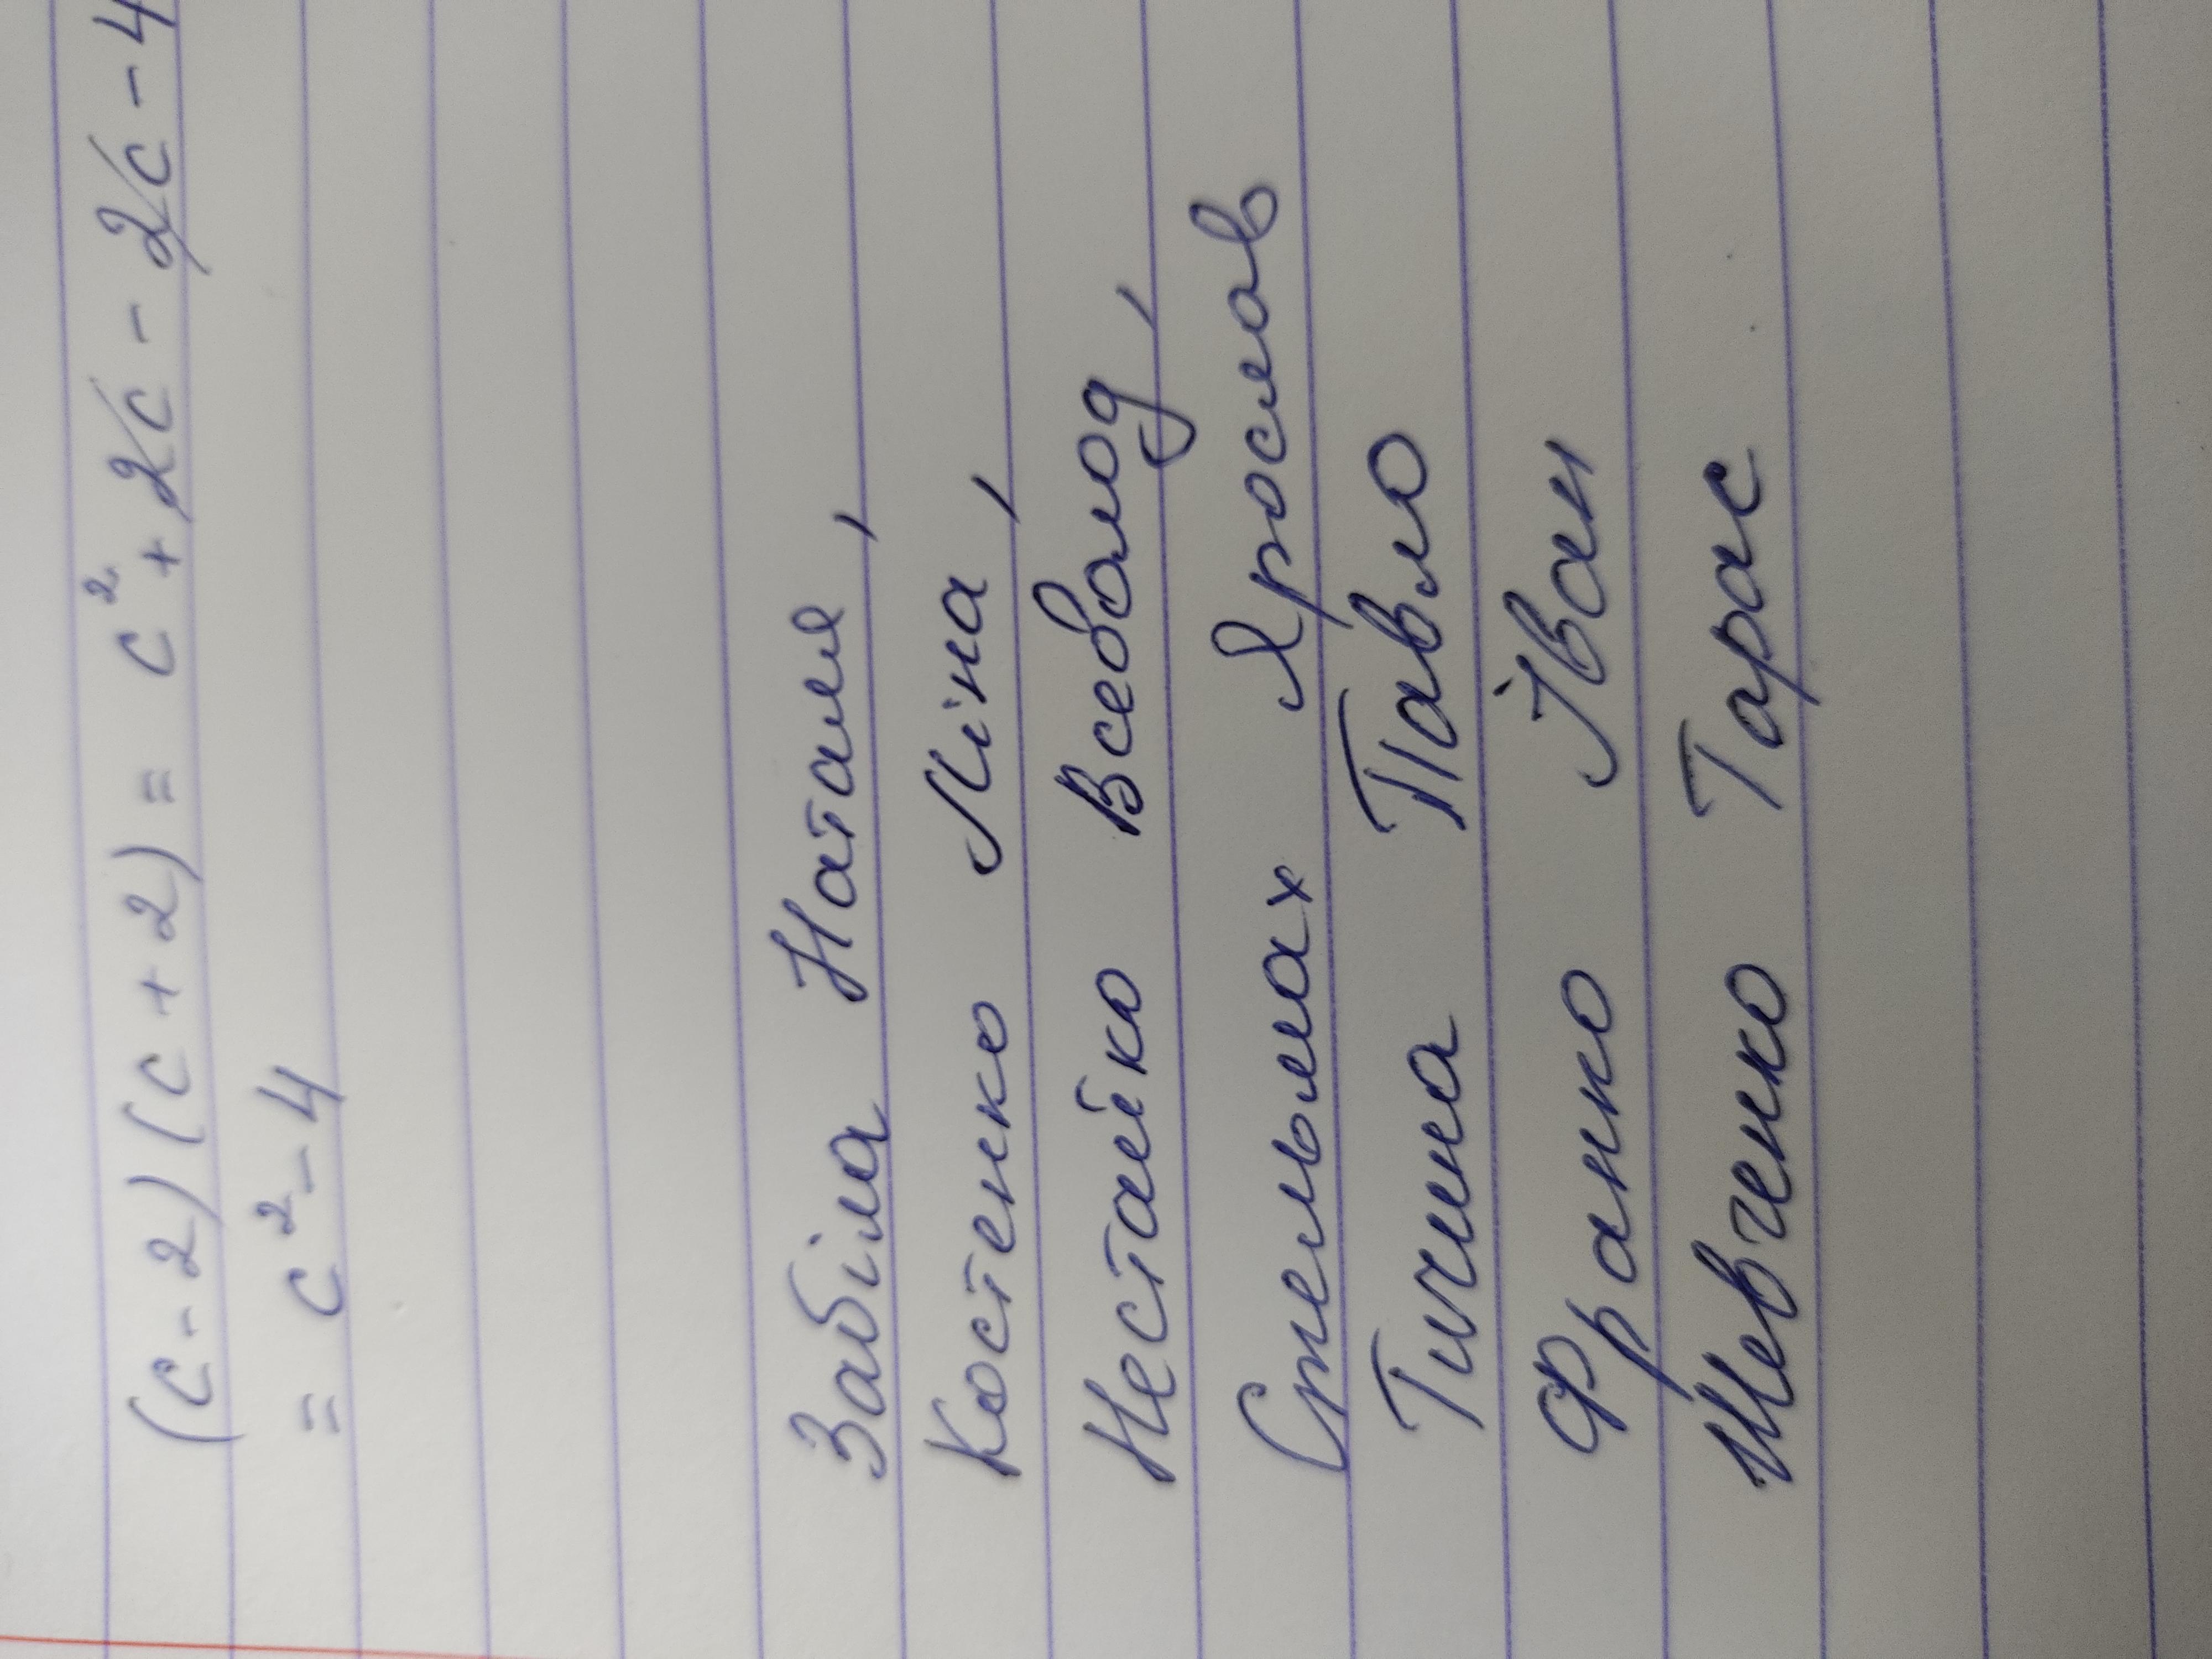 (c-2)(c+2) = c² + 2c - 2c - 4
= c² - 4
Забіла Наталя,
Костенко Ліна,
Нестайко Всеволод,
Стельмах Ярослав
Тичина Павло
Франко Іван
Шевченко Тарас